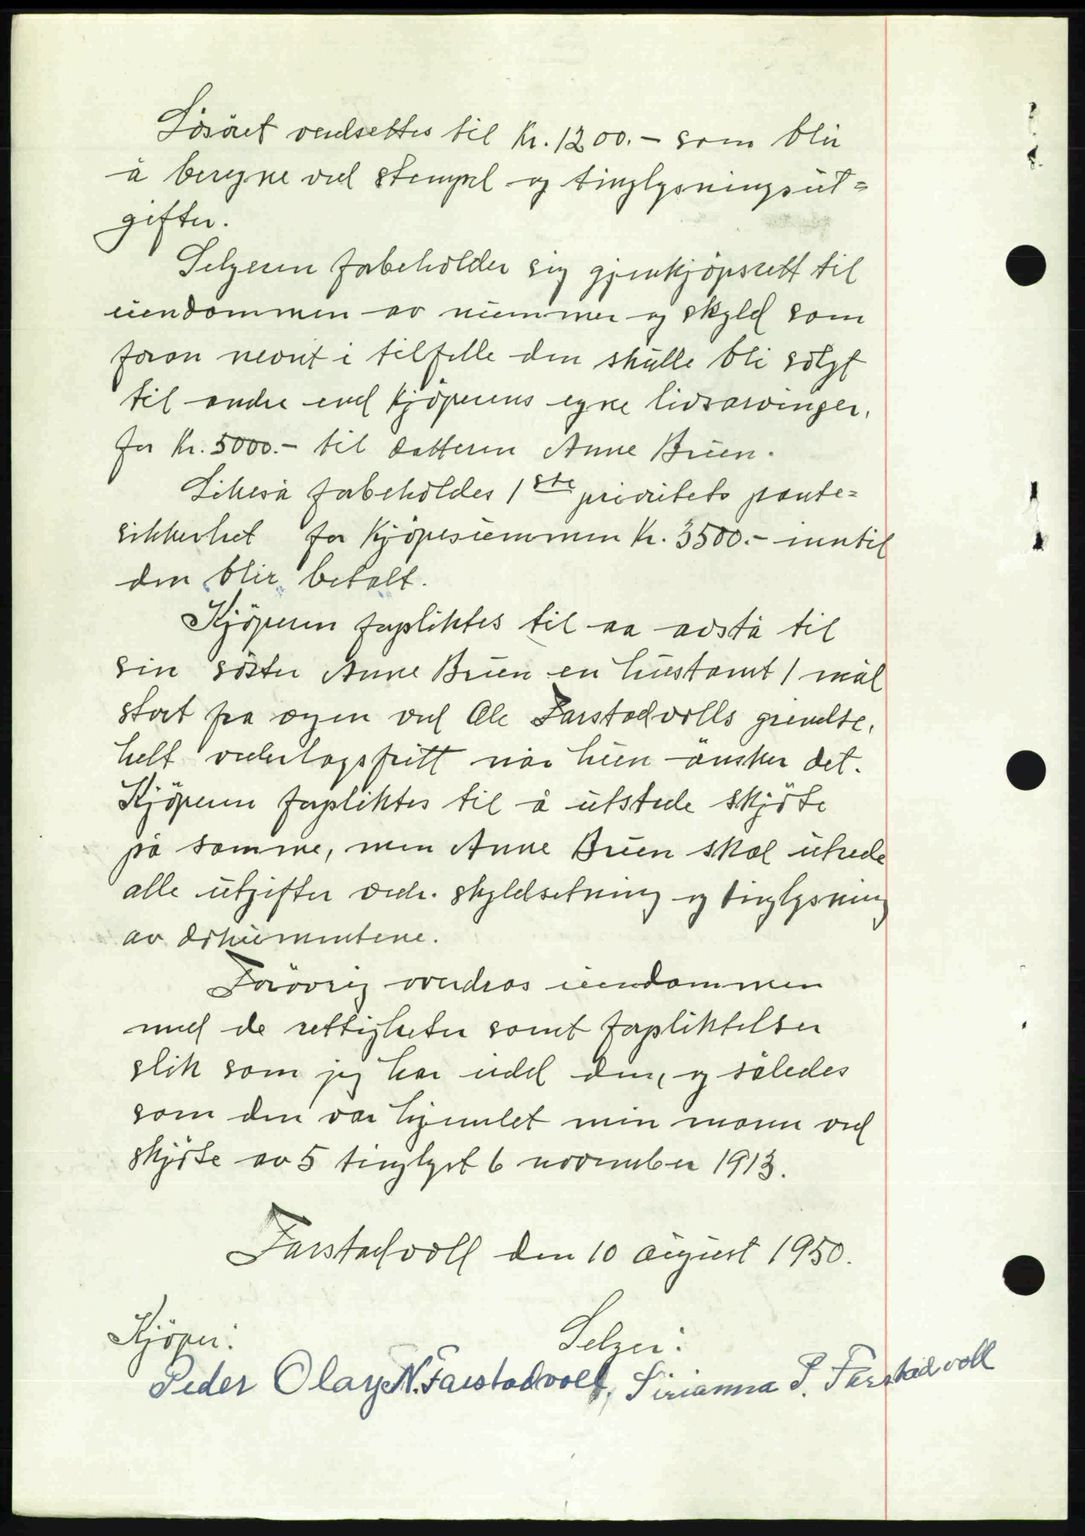 Lösöret verdsettes til Kr. 1200.- som blir
å beregne ved stempel og tinglysningsut=
gifter.
Selgeren forbeholder sig gjenkjöpsrett til
eiendommen av nummer og skyld som
foran nevnt i tilfelle den skulle bli solgt
til andre end kjöperens egne livsarvinger,
for Kr. 5000.- til datteren Anne Bruen.
Likeså forbeholdes 1ste prioritets pante=
sikkerhet for kjöpesummen Kr. 3500.- inntil
den blir betalt.
Kjöperen forpliktes til aa avstå til
sin söster Anne Bruen en hustomt 1 mål
stort fra vegen ved Ole Farstadvolls grendse,
helt vederlagsfritt når hun önsker det.
Kjöperen forpliktes til å utstede skjöte
på samme, men Anne Bruen skal utrede
alle utgifter vedr. skyldsetning og tinglysning
av dokumentene.
Forövrig overdras eiendommen
med de rettigheter samt forpliktelser
slik som jeg har eidd den, og således
som den var hjemlet min mann ved
skjöte av 5 tinglyst 6 november 1913.
Farstadvoll den 10 august 1950.
Kjöper: Selger:
Peder Olav N. Farstadvoll, Sirianna P. Farstadvoll